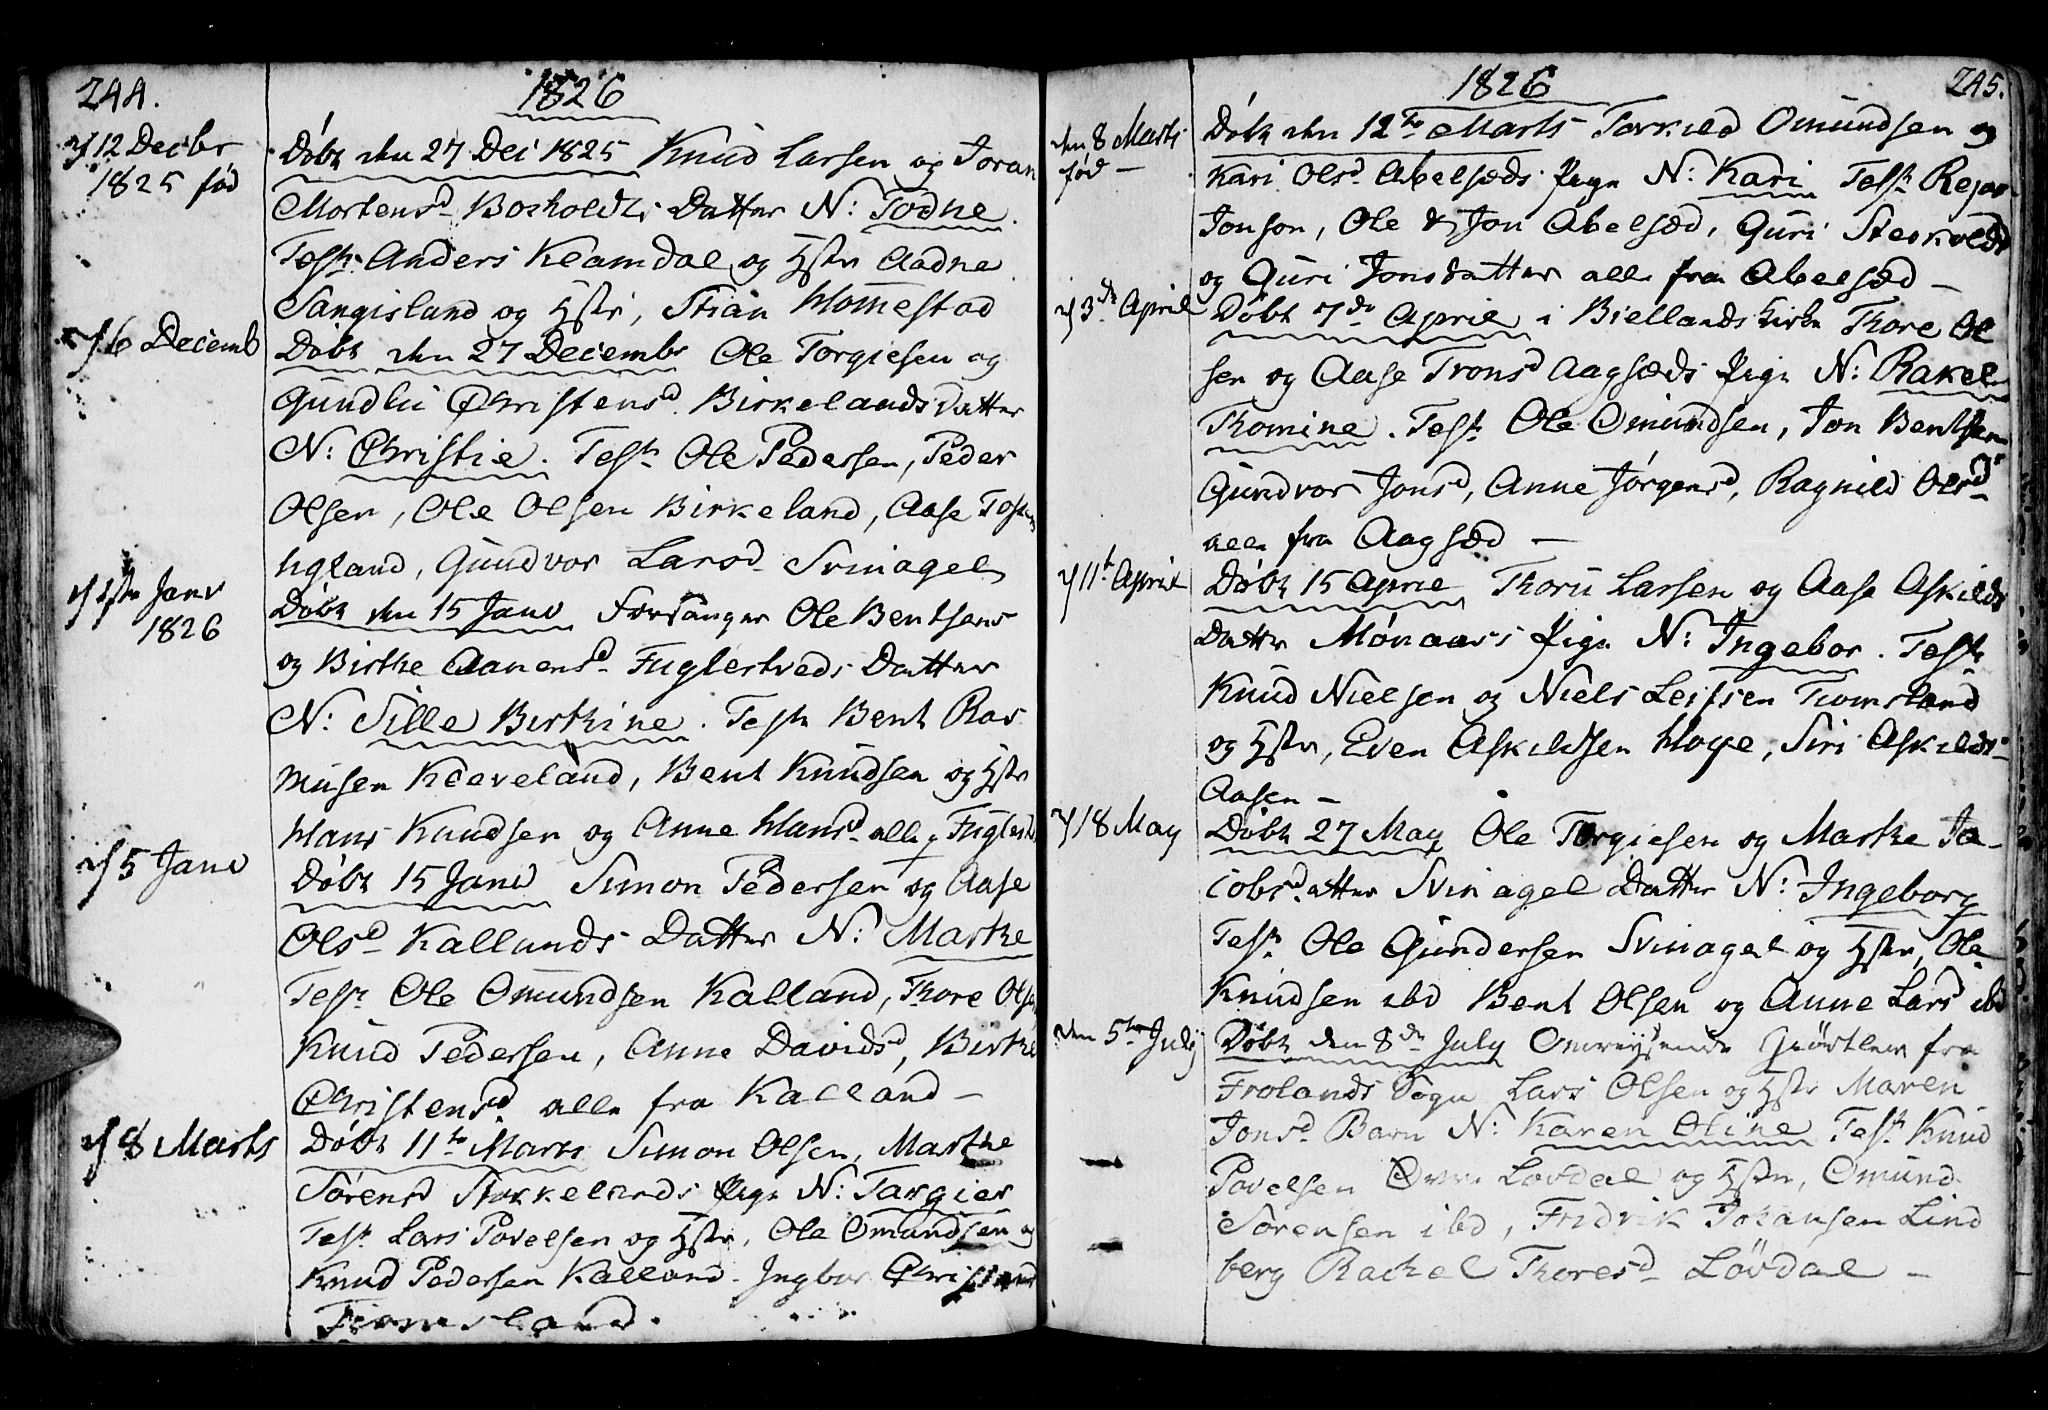 244.
1826
12 Decbr
1825 fød
Døbt den 27 Dec 1825 Knud Larsen og Joran
Mortensd Bosholdts Datter N: Todne.
Test: Anders Kleamdal og Hstr Aadne
Sangisland og Hstr, Stian Homestad
6 Decemb
Døbt den 27 Decembr Ole Torgiesen og
Gundlei Christensd. Birkelands Datter
N: Christie. Test: Ole Pedersen, Peder
Olsen, Ole Olsen Birkeland, Aase
Ugland, Gundvor Larsd Svinagel
1ste Janv
1826
Døbt den 15 Janv Forsanger Ole Bentsens
og Birthe Aanensd Fuglestveds Datter
N: Sille Birthine. Test: Bent Ras
musen Kleveland, Bent Knudsen og Hstr
Hans Knudsen og Anne Hansd alle
5 Janv
Døbt 15 Janv Simon Pedersen og Aase
Olsd Kallands Datter N: Marthe
Test: Ole Omundsen Kalland, Thore Olsen
Knud Pedersen, Anne Davidsd, Birthe
Christensd alle fra Kalland –
8 Marts
Døbt 11te Marts Simon Olsen, Marthe
Sørensd Stokkelands Pige N: Targier
Test: Lars Povelsen og Hstr, Ole Omundsen og
Knud Pedersen Kalland. Ingbor
Fiomsland.
1826
245.
den 8 Marts
fød –
Døbt den 12te Marts Torkild Omundsen og
Kari Olsd Abelsæds Pige N: Kari Test:
Jonson, Ole & Jon Abelsæd, Guri
og Guri Jonsdatter alle fra Abelsæd –
3de April
Døbt 7de April i Biellands Kirke Thore Ol
sen og Aase Tronsd Aagsæds Pige N: Rakel
Thomine. Test: Ole Omundsen, Jon Bentsen
Gundvor Jonsd, Anne Jørgensd, Ragnild Olsd
alle fra Aagsæd –
11te April
Døbt 15 April Thoru Larsen og Aase Askilds
Datter Mønaas Pige N: Ingebor. Test:
Knud Nielsen og Niels Leifsen Fiomsland
og Hstr, Even Askildsen Hoye, Siri Askilds
Aasen –
18 May
Døbt 27 May Ole Torgiesen og Marthe Ja–
cobsdatter Svinagel Datter N: Ingeborg
Test: Ole Gundersen Svinagel og Hstr, Ole
Knudsen ibd Bent Olsen og Anne Larsd ibd
den 5te July
Døbt den 8de July Omreysende Giørtler fra
Frolands Sogn Lars Olsen og Hstr Maren
Jonsd Barn N: Karen Oline Test: Knud
Povelsen Øvre Løvdal og Hstr, Omund
Sørensen ibd, Fredrik Johansen Lind
berg Rachel Thoresd Løvdal –